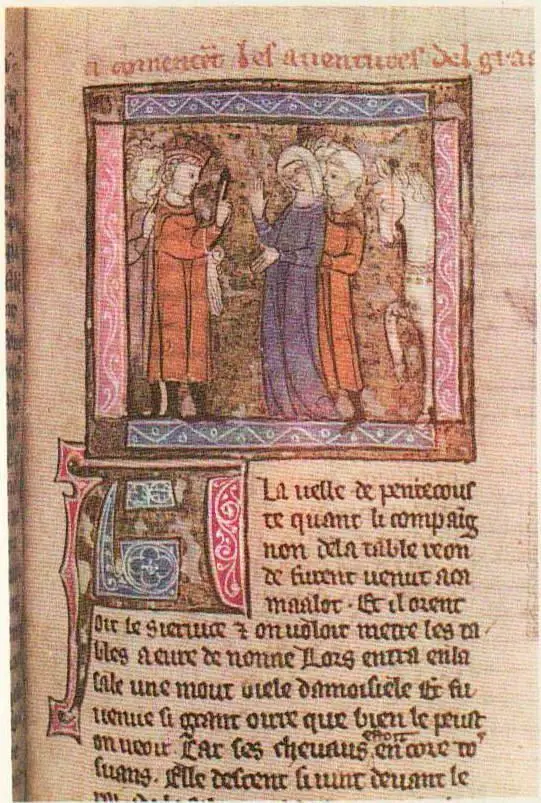 a comencent les auentures del graa
A La uelle de pentecous
te quant li compaig
non dela table reon
de furent uenut a ca
maalot · Et il orent
oit le seruice ⁊ on uoloit metre les ta
bles a eure de nonne Lors entra enla
sale une mout biele damoisiele Et fu
uenue si grant oirre que bien le peust
on ueoir Car ses cheuaus enfort encore to
suans · Elle descent si uint deuant le